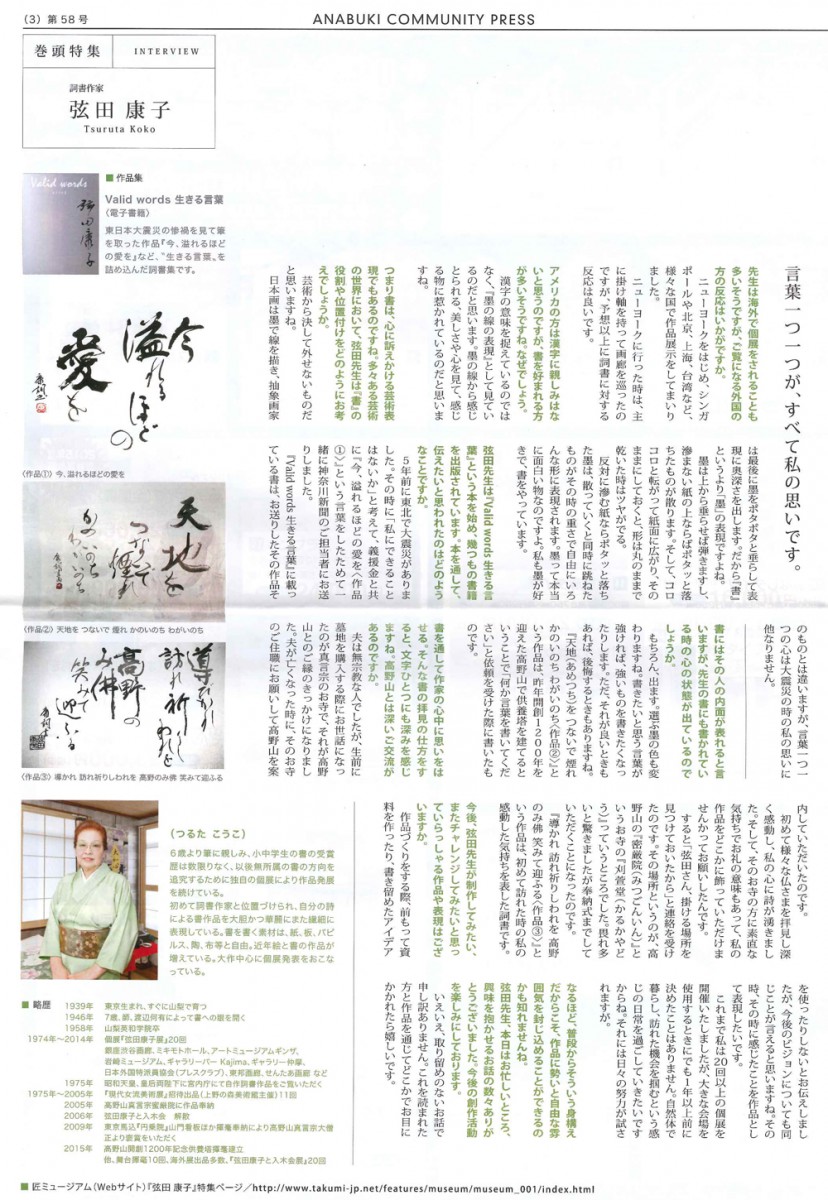 (3) 第58号
ANABUKI COMMUNITY PRESS
巻頭特集
INTERVIEW
詞書作家
弦田 康子
Tsuruta Koko
■作品集
Valid words 生きる言葉
（電子書籍）
東日本大震災の惨禍を見て筆
を取った作品『今、溢れるほど
の愛を』など、“生きる言葉„を
詰め込んだ詞書集です。
Valid words
弦田康子
今
溢れるほど
の
愛を
〈作品①〉今、溢れるほどの愛を
天地を
つないで
煙れ
かのいのち
わがいのち
〈作品②〉天地を つないで 煙れ かのいのち わがいのち
導かれ
訪れ祈り
しわれを
高野の
み佛
笑みて
迎ふる
〈作品③〉導かれ 訪れ祈りしわれを 高野のみ佛 笑みて迎ふる
言葉一つ一つが、すべて私の思いです。
先生は海外で個展をされることも
多いそうですが、ご覧になる外国の
方の反応はいかがですか。
ニューヨークをはじめ、シンガ
ポールや北京、上海、台湾など、
様々な国で作品展示をしてまいり
ました。
ニューヨークに行った時は、主
に掛け軸を持って画廊を巡ったの
ですが、予想以上に詞書に対する
反応は良いです。
アメリカの方は漢字に親しみはな
いと思うのですが、書を好まれる方
が多いそうですね。なぜでしょう。
漢字の意味を捉えているのでは
なく、『墨の線の表現』として見てい
るのだと思います。墨の線から感じ
とられる、美しさや心を見て、感じ
る物に惹かれているのだと思いま
すね。
つまり書は、心に訴えかける芸術表
現でもあるのですね。多々ある芸術
の世界において、弦田先生は『書』の
役割や位置付けをどのようにお考
えでしょうか。
芸術から決して外せないものだ
と思いますね。
日本画は墨で線を描き、抽象画家
は最後に墨をポタポタと垂らして表
現に奥深さを出します。だから『書』
というより『墨』の表現ですよね。
墨は上から垂らせば弾きますし、
滲まない紙の上ならばポタッと落
ちたものが散ります。そして、コロ
コロと転がって紙面に広がり、その
ままにしておくと、形は丸のままで
乾いた時はツヤがでる。
反対に滲む紙ならポタッと落ち
た墨は、散っていくと同時に跳ねた
ものがその時の重さで自由にいろ
んな形に表現されます。墨って本当
に面白い物なのですよ。私も墨が好
きで、書をやっています。
弦田先生は『Valid words 生きる言
葉』という本を始め、幾つもの書籍
を出版されています。本を通して、
伝えたいと思われたのはどのよう
なことですか。
5年前に東北で大震災がありま
した。その時に「私にできること
はないか」と考えて、義援金と共
に『今、溢れるほどの愛を〈作品
①〉』という言葉をしたためて一
緒に神奈川新聞のご担当者にお送
りしました。
『Valid words 生きる言葉』に載っ
ている書は、お送りしたその作品そ
のものとは違いますが、言葉一つ一
つの心は大震災の時の私の思いに
他なりません。
書にはその人の内面が表れると言
いますが、先生の書にも書かれてい
る時の心の状態が出ているので
しょうか。
もちろん、出ます。選ぶ墨の色も変
わりますね。書きたいと思う言葉が
強ければ、強いものを書きたくなっ
たりします。ただ、それが良いときも
あれば、後悔するときもありますね。
『天地(あめつち)を つないで 煙れ
かのいのち わがいのち〈作品②〉』と
いう作品は、昨年開創1200年を
迎えた高野山で供養塔を建てると
いうことで「何か言葉を書いてくだ
さい」と依頼を受けた際に書いたも
のです。
書を通して作家の心中に思いをは
せる。そんな書の拝見の仕方をす
ると、文字ひとつにも深みを感じ
ますね。高野山とは深いご交流が
あるのですか。
夫は無宗教な人でしたが、生前に
墓地を購入する際にお世話になっ
たのが真言宗のお寺で、それが高野
山とのご縁のきっかけになりまし
た。夫が亡くなった時に、そのお寺
のご住職にお願いして高野山を案
内していただいたのです。
初めて様々な仏さまを拝見し深
く感動し、私の心に詩が湧きまし
た。そして、そのお寺の方に素直な
気持ちでお礼の意味もあって、私の
作品をどこかに飾っていただけま
せんかってお願いしたんです。
すると、「弦田さん、掛ける場所を
見つけておいたから」と連絡を受け
たのです。その場所というのが、高
野山の『密厳院(みつごんいん)』と
いうお寺の『刈萱堂(かるかやど
う)』っていうところでした。畏れ多
いと驚きましたが奉納式までして
いただくことになったのです。
『導かれ 訪れ祈りしわれを 高野
のみ佛 笑みて迎ふる〈作品③〉』と
いう作品は、初めて訪れた時の私の
感動した気持ちを表した詞書です。
今後、弦田先生が制作してみたい、
またチャレンジしてみたいと思っ
ていらっしゃる作品や表現はござ
いますか。
作品づくりをする際、前もって資
料を作ったり、書き留めたアイデア
を使ったりしないとお伝えしまし
たが、今後のビジョンについても同
じことが言えると思います。その
時、その時に感じたことを作品とし
て表現したいです。
これまで私は20回以上の個展を
開催いたしましたが、大きな会場を
使用するときにでも1年以上前に
決めたことはありません。自然体で
暮らし、訪れた機会を掴むという感
じの日常を過ごしていきたいです
からね。それには日々の努力が試さ
れますが。
なるほど、普段からそういう身構え
だからこそ、作品に勢いと自由な雰
囲気を封じ込めることができるの
かも知れませんね。
弦田先生、本日はお忙しいところ、
興味を抱かせるお話の数々ありが
とうございました。今後の創作活動
を楽しみにしております。
いえいえ、取り留めのないお話で
申し訳ありません。これを読まれた
方と作品を通じてどこかでお目に
かかれたら嬉しいです。
（つるた こうこ）
6歳より筆に親しみ、小中学生の書の受賞
歴は数限りなく、以後無所属の書の方向を
追究するために独自の個展により作品発展
を続けている。
初めて詞書作家と位置づけられ、自分の詩
による書作品を大胆かつ華麗にまた繊細に
表現している。書を書く素材は、紙、板、パピ
ルス、陶、布等と自由。近年絵と書の作品が
増えている。大作中心に個展発表をおこな
っている。
■略歴
1939年 東京生まれ、すぐに山梨で育つ
1946年 7歳、師、渡辺何有によって書への眼を開く
1958年 山梨英和学院卒
1974年～2014年 個展『弦田康子展』20回
銀座渋谷画廊、ミキモトホール、アートミュージアムギンザ、
岩崎ミュージアム、ギャラリーバー Kajima、ギャラリー仲摩、
日本外国特派員協会（プレスクラブ）、東邦画廊、せんたあ画廊 など
1975年 昭和天皇、皇后両陛下に宮内庁にて自作詞書作品をご覧いただく
1975年～2005年 『現代女流美術展』招待出品（上野の森美術館主催）11回
2005年 高野山真言宗蜜厳院に作品奉納
2006年 弦田康子と入木会 解散
2009年 東京馬込『円乗院』山門看板ほか揮毫奉納により高野山真言宗大僧
正より褒賞をいただく
2015年 高野山開創1200年記念供養塔揮毫建立
他、舞台揮毫10回、海外展出品多数、『弦田康子と入木会展』20回
■匠ミュージアム（Webサイト）『弦田 康子』特集ページ／http://www.takumi-jp.net/features/museum/museum_001/index.html